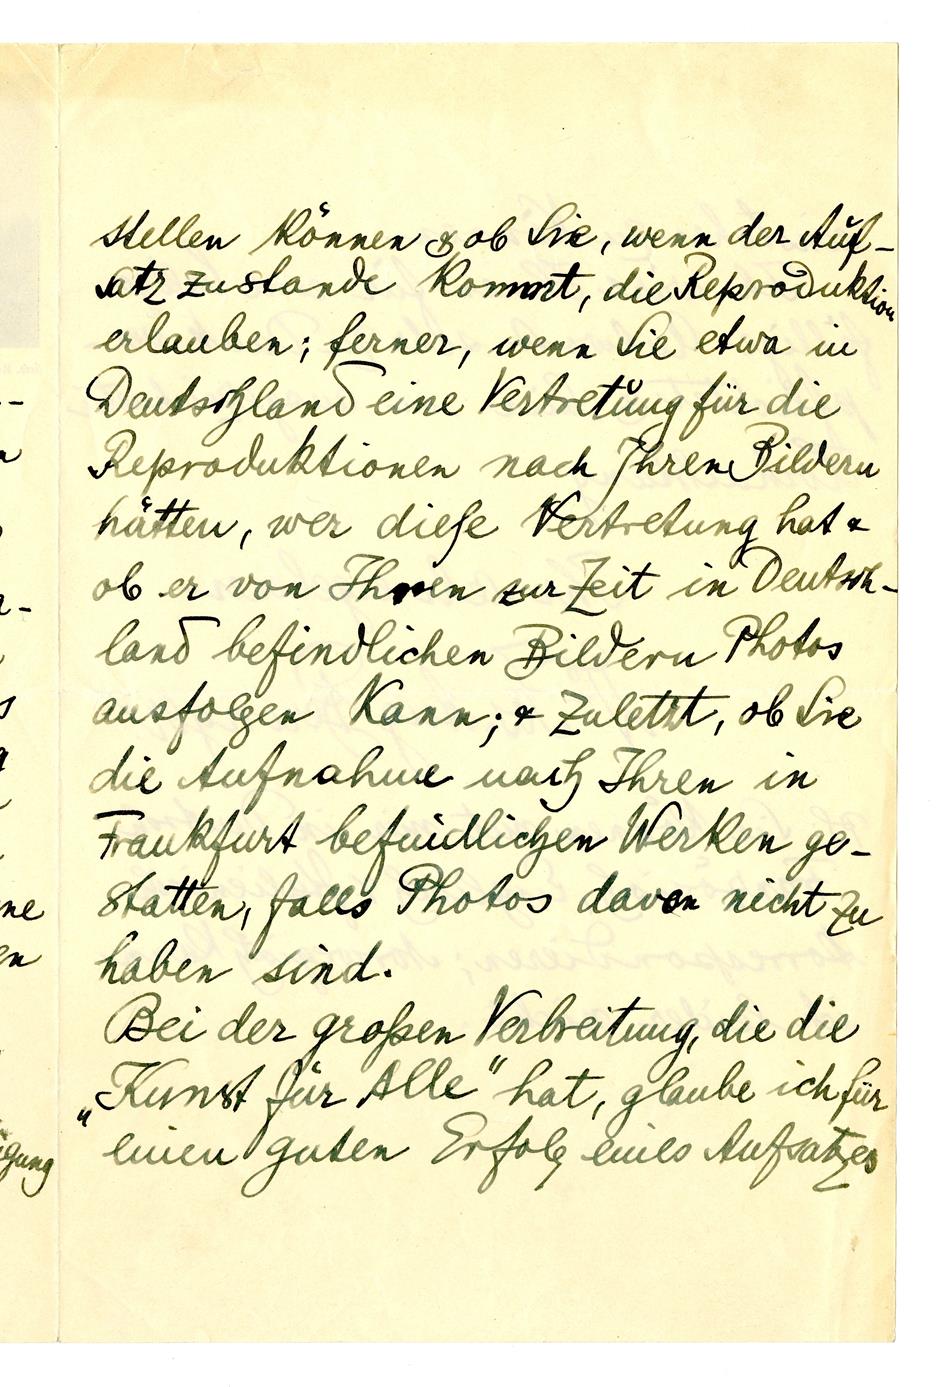 stellen können & ob Sie, wenn der Auf-
satz zustande kommt, die Reproduktion
erlauben; ferner, wenn Sie etwa in
Deutschland eine Vertretung für die
Reproduktionen nach Ihren Bildern
hätten, wer diese Vertretung hat &
ob er von Ihnen zur Zeit in Deutsch-
land befindlichen Bildern Photos
ausfolgen kann; & zuletzt, ob Sie
die Aufnahme nach Ihren in
Frankfurt befindlichen Werken ge-
statten, falls Photos davon nicht zu
haben sind.
Bei der großen Verbreitung, die die
„Kunst für Alle" hat, glaube ich für
einen guten Erfolg eines Aufsatzes